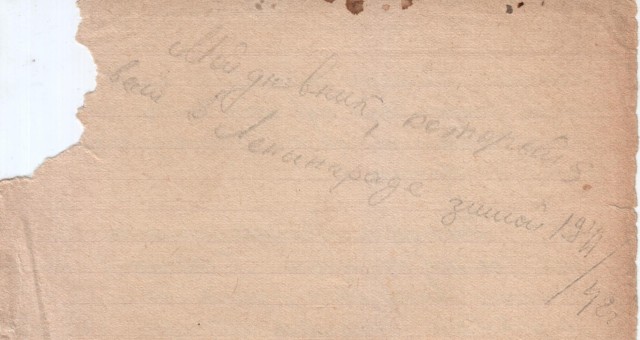 Мой дневник, который я
вел в Ленинграде зимой 1941/42 г